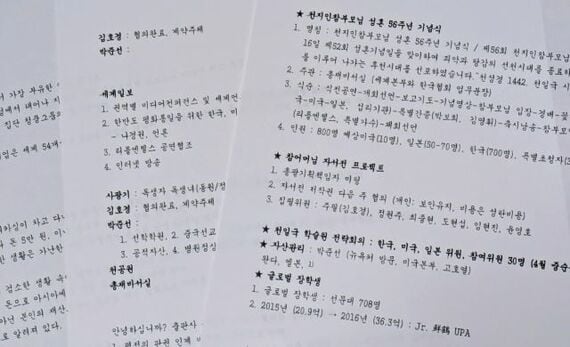 서 가장 자유한
넘에서 태어나 지
집단 칭콜그룹의
업은 세계 54개
하심이 차고 다니
돈 5만 원, 이
한 생활은 가난한
검소한 생활 속
돈으로 아시아에
아닌 본인의 재산.
로 알려져 있다.
김호경 : 협의완료, 계약주체
박준선 :
세계일보
1. 권역별 미디어컨퍼런스 및 세계언
2. 한반도 평화통일을 위한 한국, 미
- 나경원, 언론
3. 리틀엔젤스 공연협조
4. 인터넷 방송
사광기 : 독생자 독생녀(동원/정
김호경 : 협의완료, 계약주체
박준선 :
1. 선학학원, 2. 중국선교
3. 공적자산, 4. 병원점심
천공원
총재비서실
안녕하십니까? 출판사
★ 천지인참부모님 성혼 56주년 기념식
1. 명칭 : 천지인참부모님 성혼 56주년 기념식 / 제56회 천지인참부모님
16일 제52회 성혼기념일을 맞이하며 죄악과 탕감의 선천시대를 종료하
를 이루어 나가는 후천시대를 선포하였습니다."천성경 1442. 천일국 시
2. 주관 : 총재비서실 (세계본부와 한국협회 업무분장)
3. 식순 : 식전공연-개회선언-보고기도-기념영상-참부모님 입장-경배-꽃
국-미국-일본, 섭리기관)-특별간증(박보희, 김영휘)-즉시낭송-참부모
(리틀엔젤스, 특별가수)-폐회선언
4. 인원 : 800명 예상미국(10명), 일본(30-70명), 한국(700명), 특별초청자(3
★ 참어머님 자서전 프로젝트
1. 총괄기획책임자 미팅
2. 자서전 저작권 다음 주 협의 (개인: 보안유지, 비용은 성탄비용)
3. 집필위원 : 주필(김호경), 정원주, 최중현, 도현섭, 임현진, 윤영호
★ 천일국 학술원 전략회의 : 한국, 미국, 일본 위원, 참여위원 30명 (4월 중순
★ 자산관리 : 박준선 (뉴욕처 방문, 미국본부, 고호영)
완다, 멜본,
★ 글로벌 장학생
1. 글로벌 장학생 : 선문대 708명
2. 2015년 (20.9억) → 2016년 (36.3억) : Jr. 鮮鶴 UPA